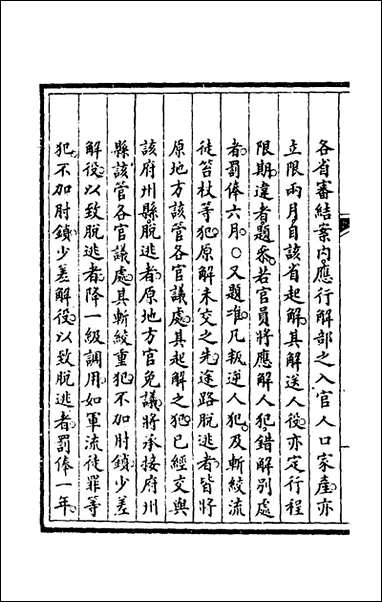 各省審結案内應行解部之入官人口家產亦
立限兩月自該省起解其解送人役亦定行程
限期違者題叅若官員將應解人犯錯解別處
者罰俸六月○又題准凡叛逆人犯及斬絞流
徒笞杖等犯原解未交之先途路脫逃者皆將
原地方該管各官議處其起解之犯已經交與
該府州縣脫逃者原地方官免議將承接府州
縣該管各官議處其斬絞重犯不加肘鎖少差
解役以致脫逃者降一級調用如軍流徒罪等
犯不加肘鎖少差解役以致脫逃者罰俸一年